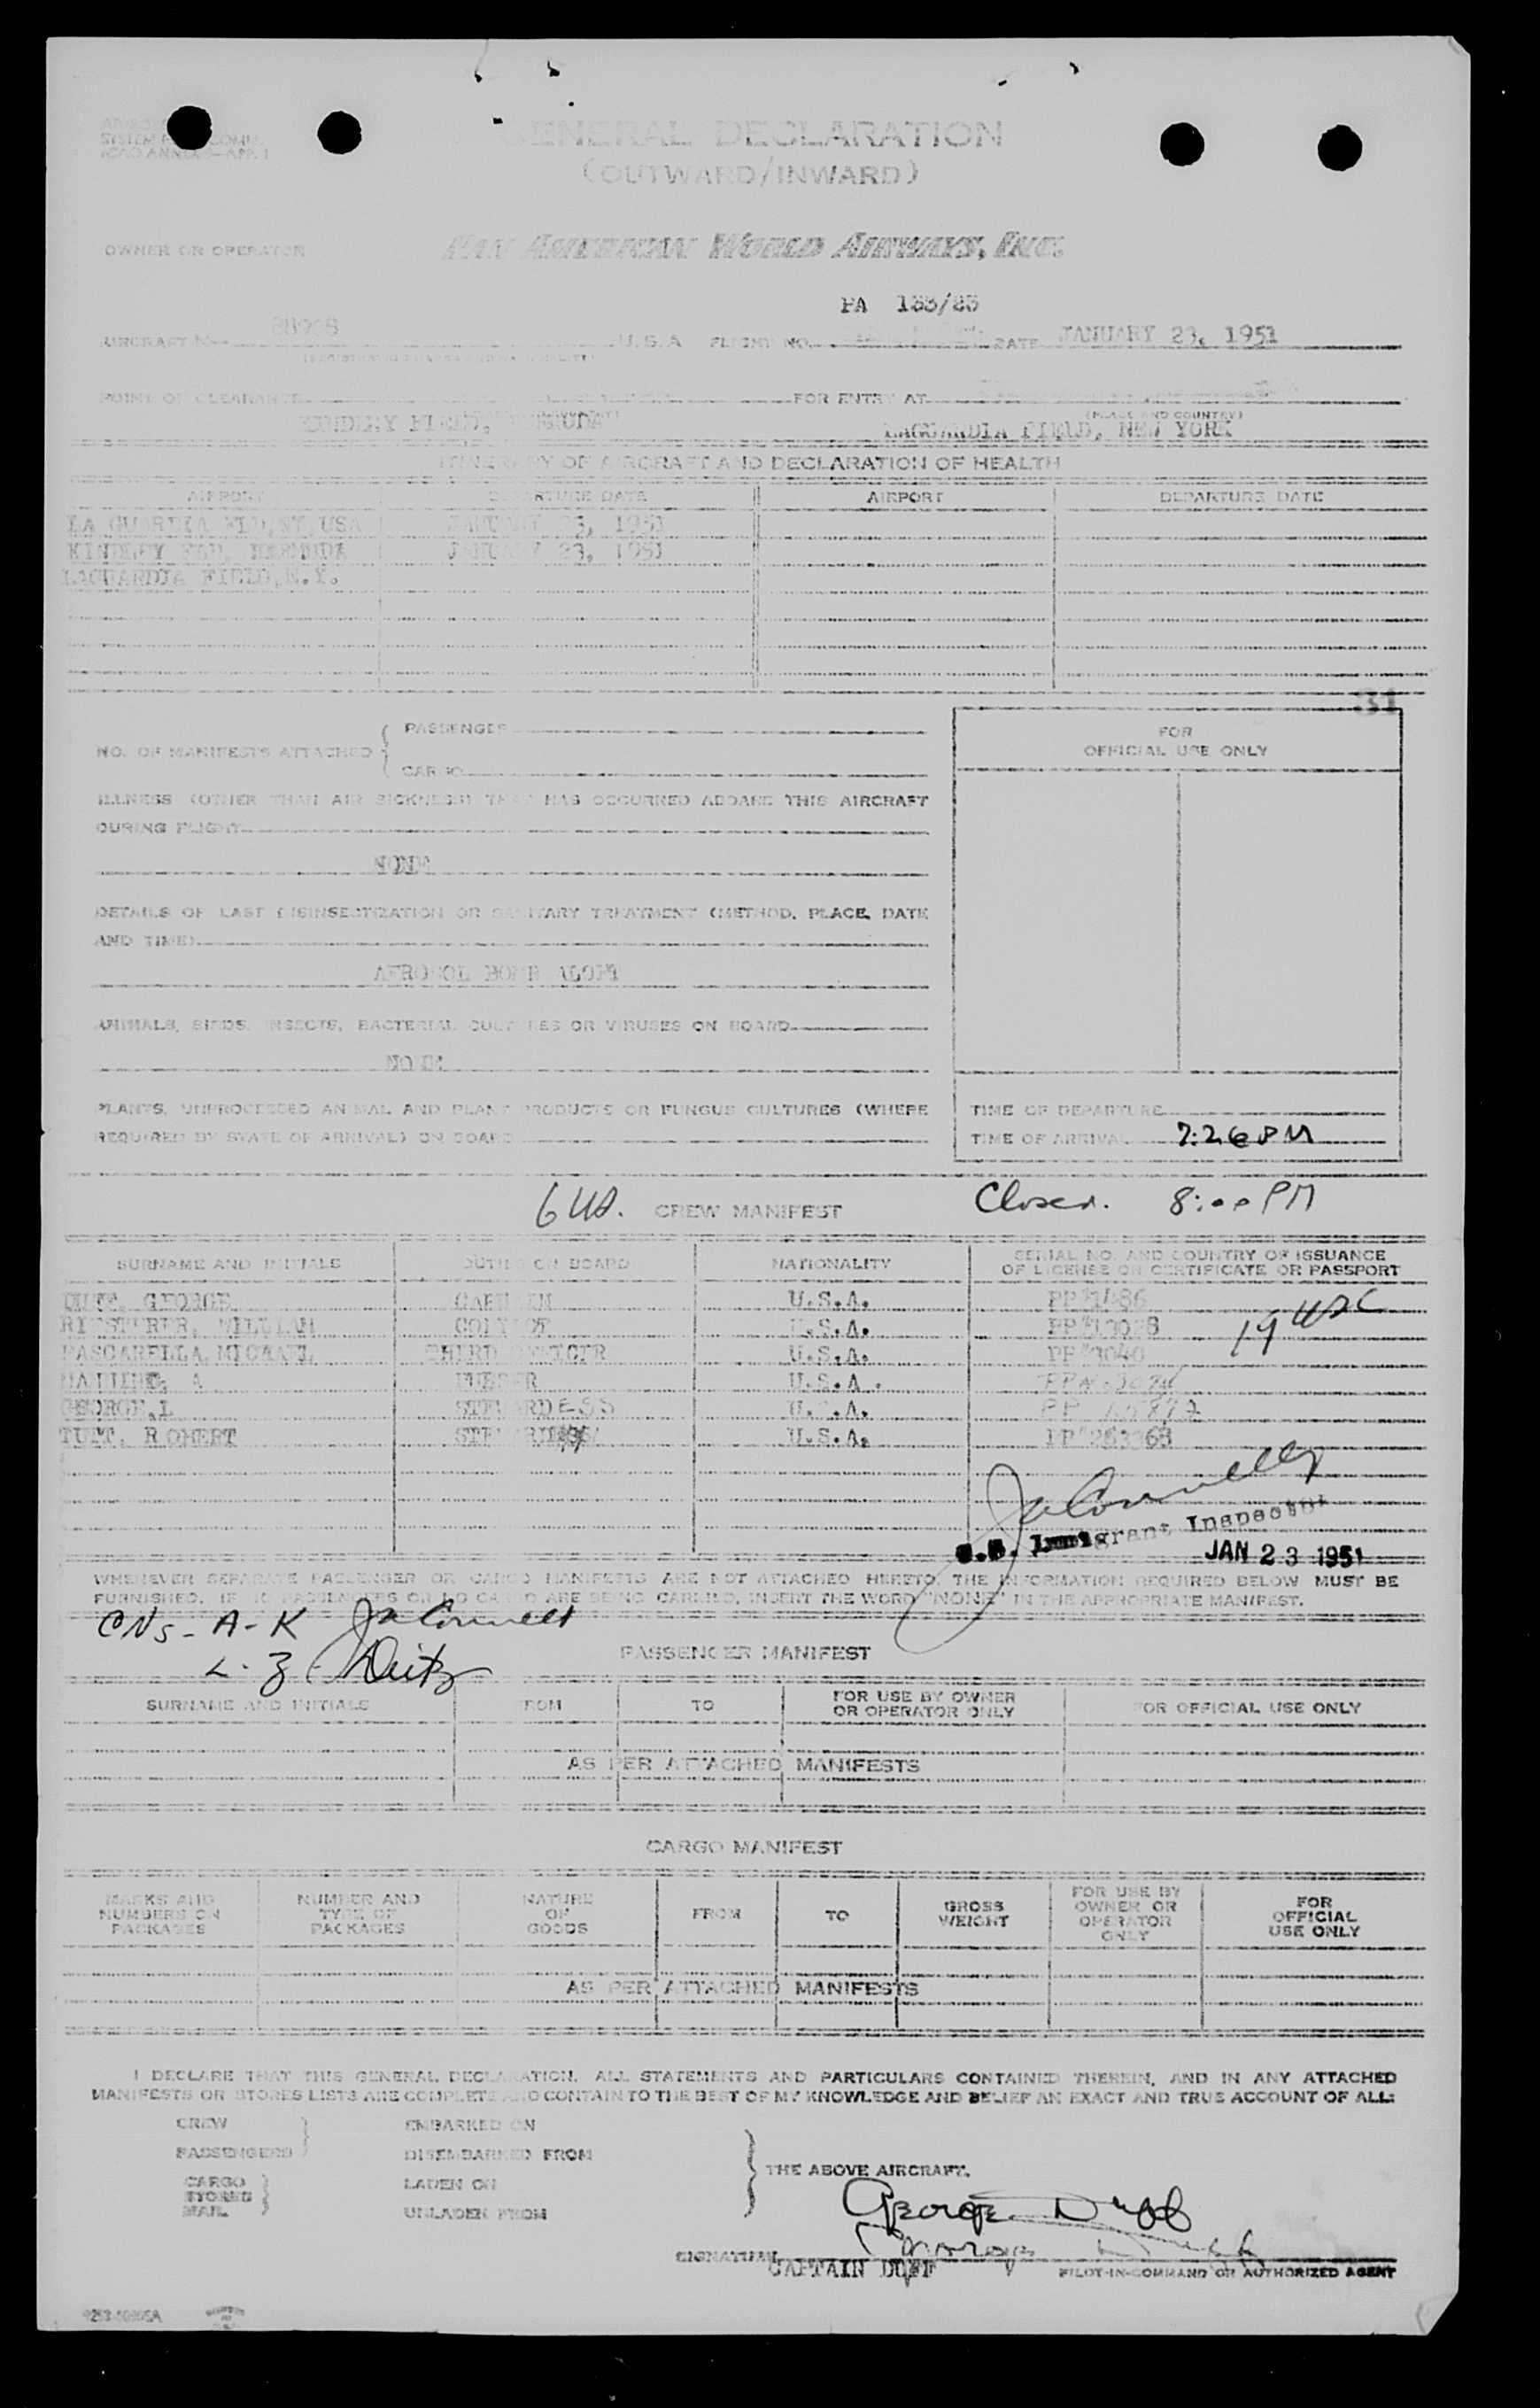 GENERAL DECLARATION
(OUTWARD/INWARD)
OWNER OR OPERATOR PAN AMERICAN WORLD AIRWAYS, INC.
PA 133/83
AIRCRAFT No. U.S.A FLIGHT NO. DATE JANUARY 23, 1951
POINT OF CLEARANCE FOR ENTRY AT
(PLACE AND COUNTRY)
KINDLEY FIELD, BERMUDA LAGUARDIA FIELD, NEW YORK
ITINERARY OF AIRCRAFT AND DECLARATION OF HEALTH
AIRPORT DEPARTURE DATE AIRPORT DEPARTURE DATE
LA GUARDIA FLD, NY, USA JANUARY 23, 1951
KINDLEY FLD, BERMUDA JANUARY 23, 1951
LAGUARDIA FIELD, N.Y.
31
NO. OF MANIFESTS ATTACHED { PASSENGER
CARGO
FOR
OFFICIAL USE ONLY
ILLNESS (OTHER THAN AIR SICKNESS) THAT HAS OCCURRED ABOARD THIS AIRCRAFT
DURING FLIGHT
NONE
DETAILS OF LAST DISINSECTIZATION OR SANITARY TREATMENT (METHOD, PLACE, DATE
AND TIME)
AEROSOL BOMB ALOFT
ANIMALS, BIRDS, INSECTS, BACTERIAL CULTURES OR VIRUSES ON BOARD
NONE
PLANTS, UNPROCESSED ANIMAL AND PLANT PRODUCTS OR FUNGUS CULTURES (WHERE
REQUIRED BY STATE OF ARRIVAL) ON BOARD
TIME OF DEPARTURE
TIME OF ARRIVAL 7:26 PM
6 US. CREW MANIFEST Closed. 8:00 PM
SURNAME AND INITIALS DUTIES ON BOARD NATIONALITY SERIAL NO. AND COUNTRY OF ISSUANCE
OF LICENSE OR CERTIFICATE OR PASSPORT
DUFF, GEORGE CAPTAIN U.S.A.
WILLIAM COPILOT U.S.A.
19 USC
PASCARELLA, MICHAEL THIRD OFFICER U.S.A.
A PURSER U.S.A.
GEORGE, L STEWARDESS U.S.A.
TUTT, ROBERT U.S.A.
Ja Connelly
U.S. Immigrant Inspector
JAN 23 1951
WHENEVER SEPARATE PASSENGER OR CARGO MANIFESTS ARE NOT ATTACHED HERETO, THE INFORMATION REQUIRED BELOW MUST BE
FURNISHED. IF NO PASSENGERS OR NO CARGO ARE BEING CARRIED, INSERT THE WORD "NONE" IN THE APPROPRIATE MANIFEST.
CNs - A-K Ja Connell
L-Z Deitz
PASSENGER MANIFEST
SURNAME AND INITIALS FROM TO FOR USE BY OWNER
OR OPERATOR ONLY FOR OFFICIAL USE ONLY
AS PER ATTACHED MANIFESTS
CARGO MANIFEST
MARKS AND
NUMBERS ON
PACKAGES
NUMBER AND
TYPE OF
PACKAGES
NATURE
OF
GOODS
FROM
TO
GROSS
WEIGHT
FOR USE BY
OWNER OR
OPERATOR
ONLY
FOR
OFFICIAL
USE ONLY
AS PER ATTACHED MANIFESTS
I DECLARE THAT THIS GENERAL DECLARATION, ALL STATEMENTS AND PARTICULARS CONTAINED THEREIN, AND IN ANY ATTACHED
MANIFESTS OR STORES LISTS ARE COMPLETE AND CONTAIN TO THE BEST OF MY KNOWLEDGE AND BELIEF AN EXACT AND TRUE ACCOUNT OF ALL:
CREW EMBARKED ON
PASSENGERS DISEMBARKED FROM
THE ABOVE AIRCRAFT.
CARGO
STORES
MAIL
LADEN ON
UNLADEN FROM
George Duff
George Duff
SIGNATURE CAPTAIN DUFF PILOT-IN-COMMAND OR AUTHORIZED AGENT